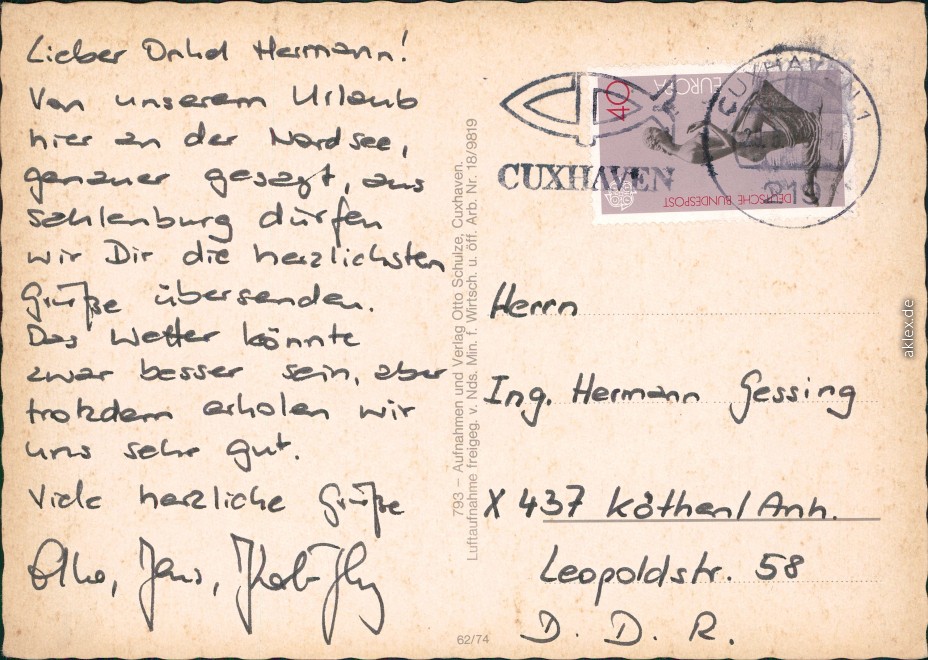 Lieber Onkel Hermann!
Von unserem Urlaub
hier an der Nordsee,
genauer gesagt, aus
Sahlenburg dürfen
wir Dir die herzlichsten
Grüße übersenden.
Das Wetter könnte
zwar besser sein, aber
trotzdem erholen wir
uns sehr gut.
Viele herzliche Grüße
Jens,
793 – Aufnahmen und Verlag Otto Schulze, Cuxhaven.
Luftaufnahme freigeg. v. Nds. Min. f. Wirtsch. u. öff. Arb. Nr. 18/9819
62/74
CUXHAVEN
CUXHAVEN 1
40
EUROPA
DEUTSCHE BUNDESPOST
Herrn
Ing. Hermann Gessing
X 437 Köthen/Anh.
Leopoldstr. 58
D. D. R.
aklex.de